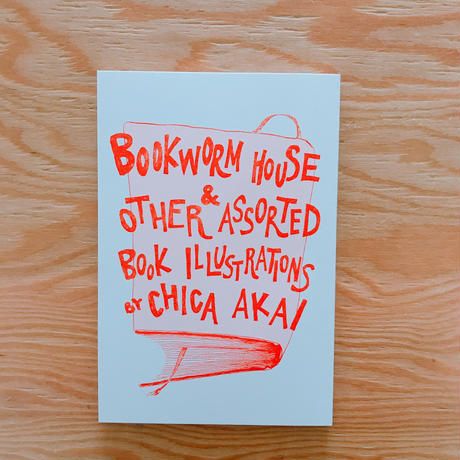 BOOKWORM HOUSE
&
OTHER ASSORTED
BOOK ILLUSTRATIONS
BY CHICA AKAI